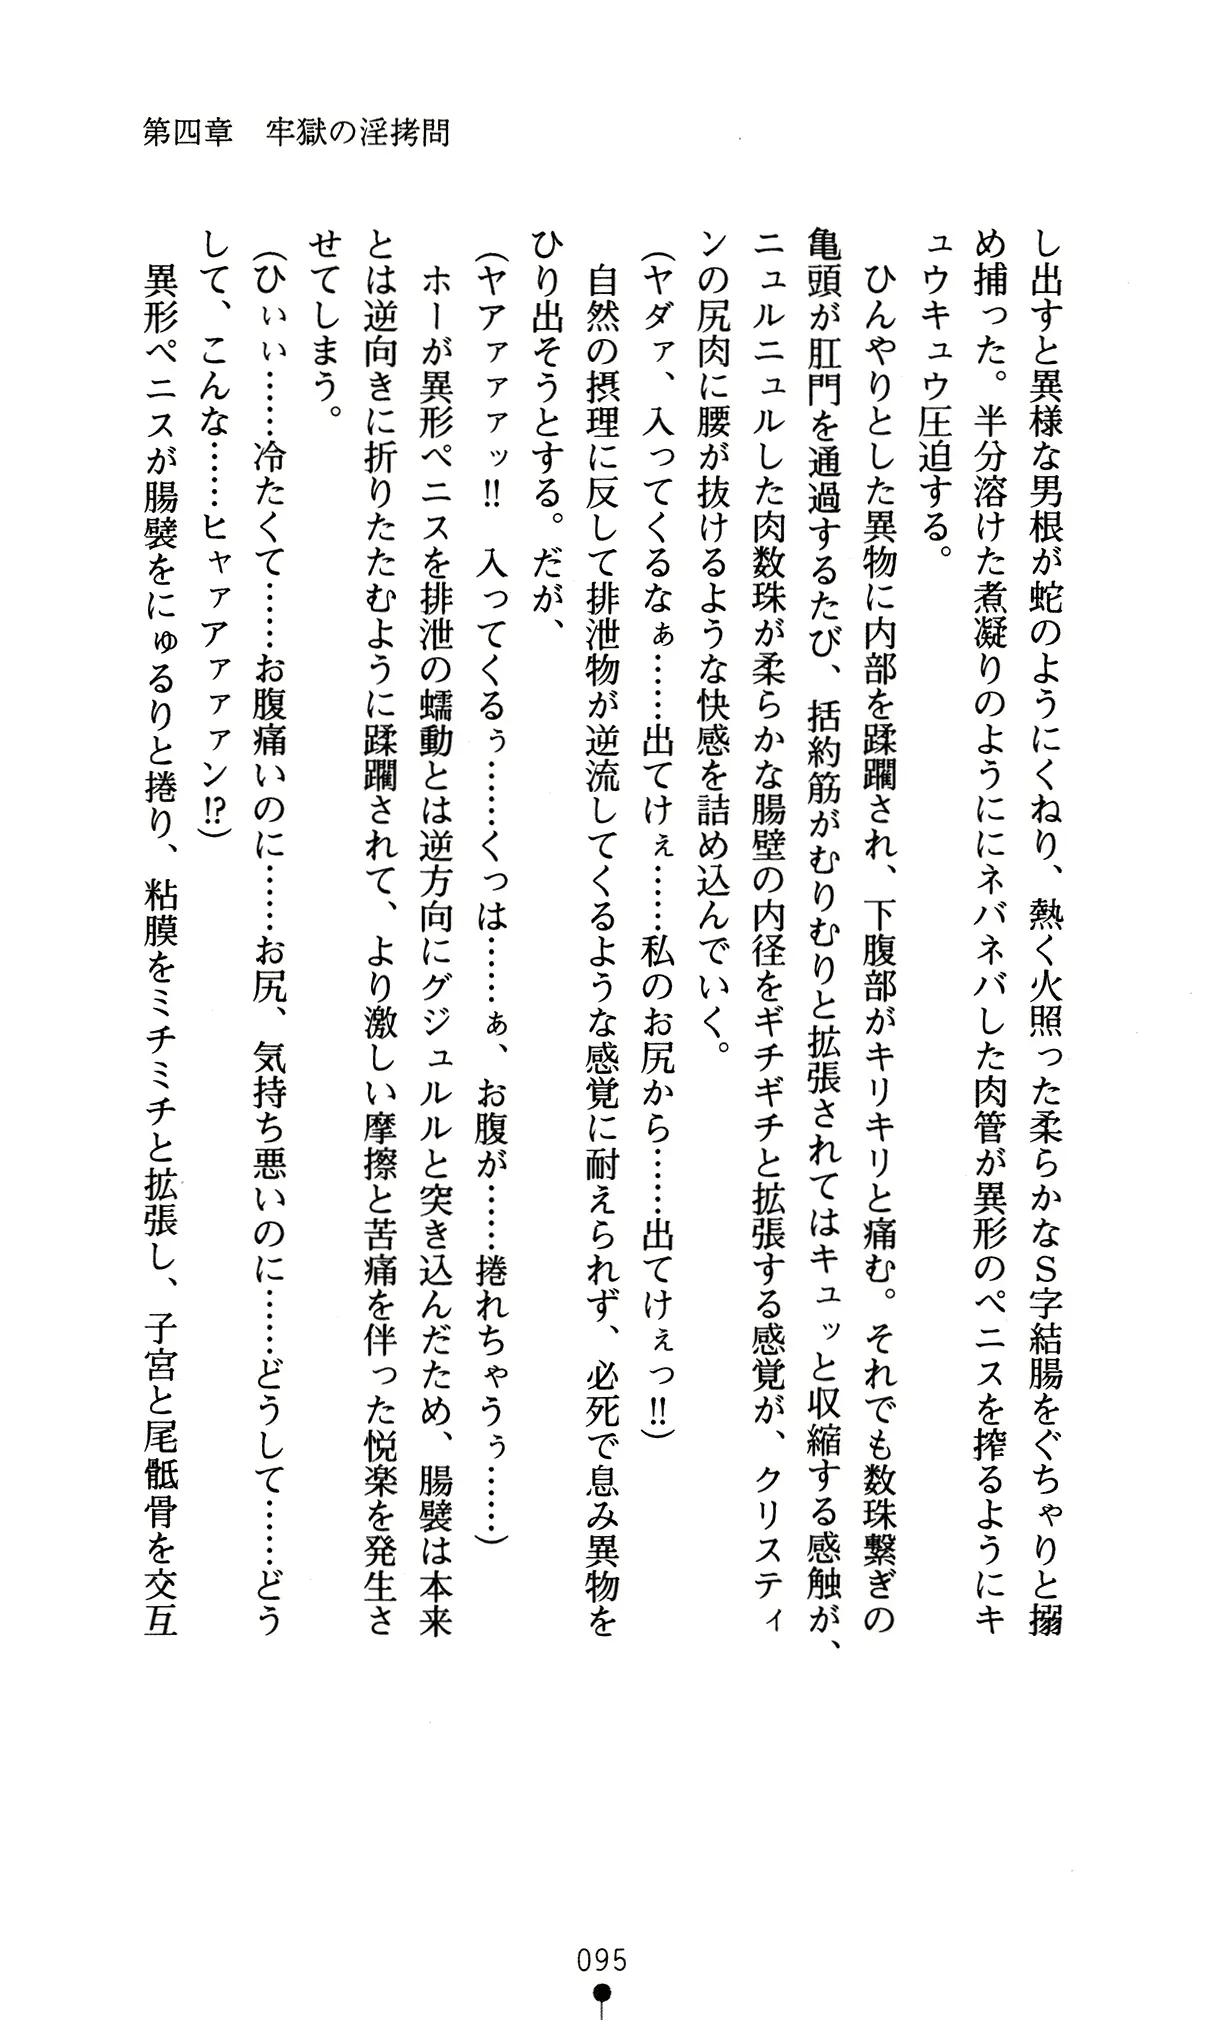 第四章　牢獄の淫拷問
し出すと異様な男根が蛇のようにくねり、熱く火照った柔らかなＳ字結腸をぐちゃりと搦
め捕った。半分溶けた煮凝りのようににネバネバした肉管が異形のペニスを搾るようにキ
ュウキュウ圧迫する。
　ひんやりとした異物に内部を蹂躙され、下腹部がキリキリと痛む。それでも数珠繋ぎの
亀頭が肛門を通過するたび、括約筋がむりむりと拡張されてはキュッと収縮する感触が、
ニュルニュルした肉数珠が柔らかな腸壁の内径をギチギチと拡張する感覚が、クリスティ
ンの尻肉に腰が抜けるような快感を詰め込んでいく。
（ヤダァ、入ってくるなぁ……出てけぇ……私のお尻から……出てけぇっ!!）
　自然の摂理に反して排泄物が逆流してくるような感覚に耐えられず、必死で息み異物を
ひり出そうとする。だが、
（ヤアァァァッ!!　入ってくるぅ……くっは……ぁ、お腹が……捲れちゃうぅ……）
　ホーが異形ペニスを排泄の蠕動とは逆方向にグジュルルと突き込んだため、腸襞は本来
とは逆向きに折りたたむように蹂躙されて、より激しい摩擦と苦痛を伴った悦楽を発生さ
せてしまう。
（ひぃぃ……冷たくて……お腹痛いのに……お尻、気持ち悪いのに……どうして……どう
して、こんな……ヒャァアァァァン!?）
　異形ペニスが腸襞をにゅるりと捲り、粘膜をミチミチと拡張し、子宮と尾骶骨を交互
095